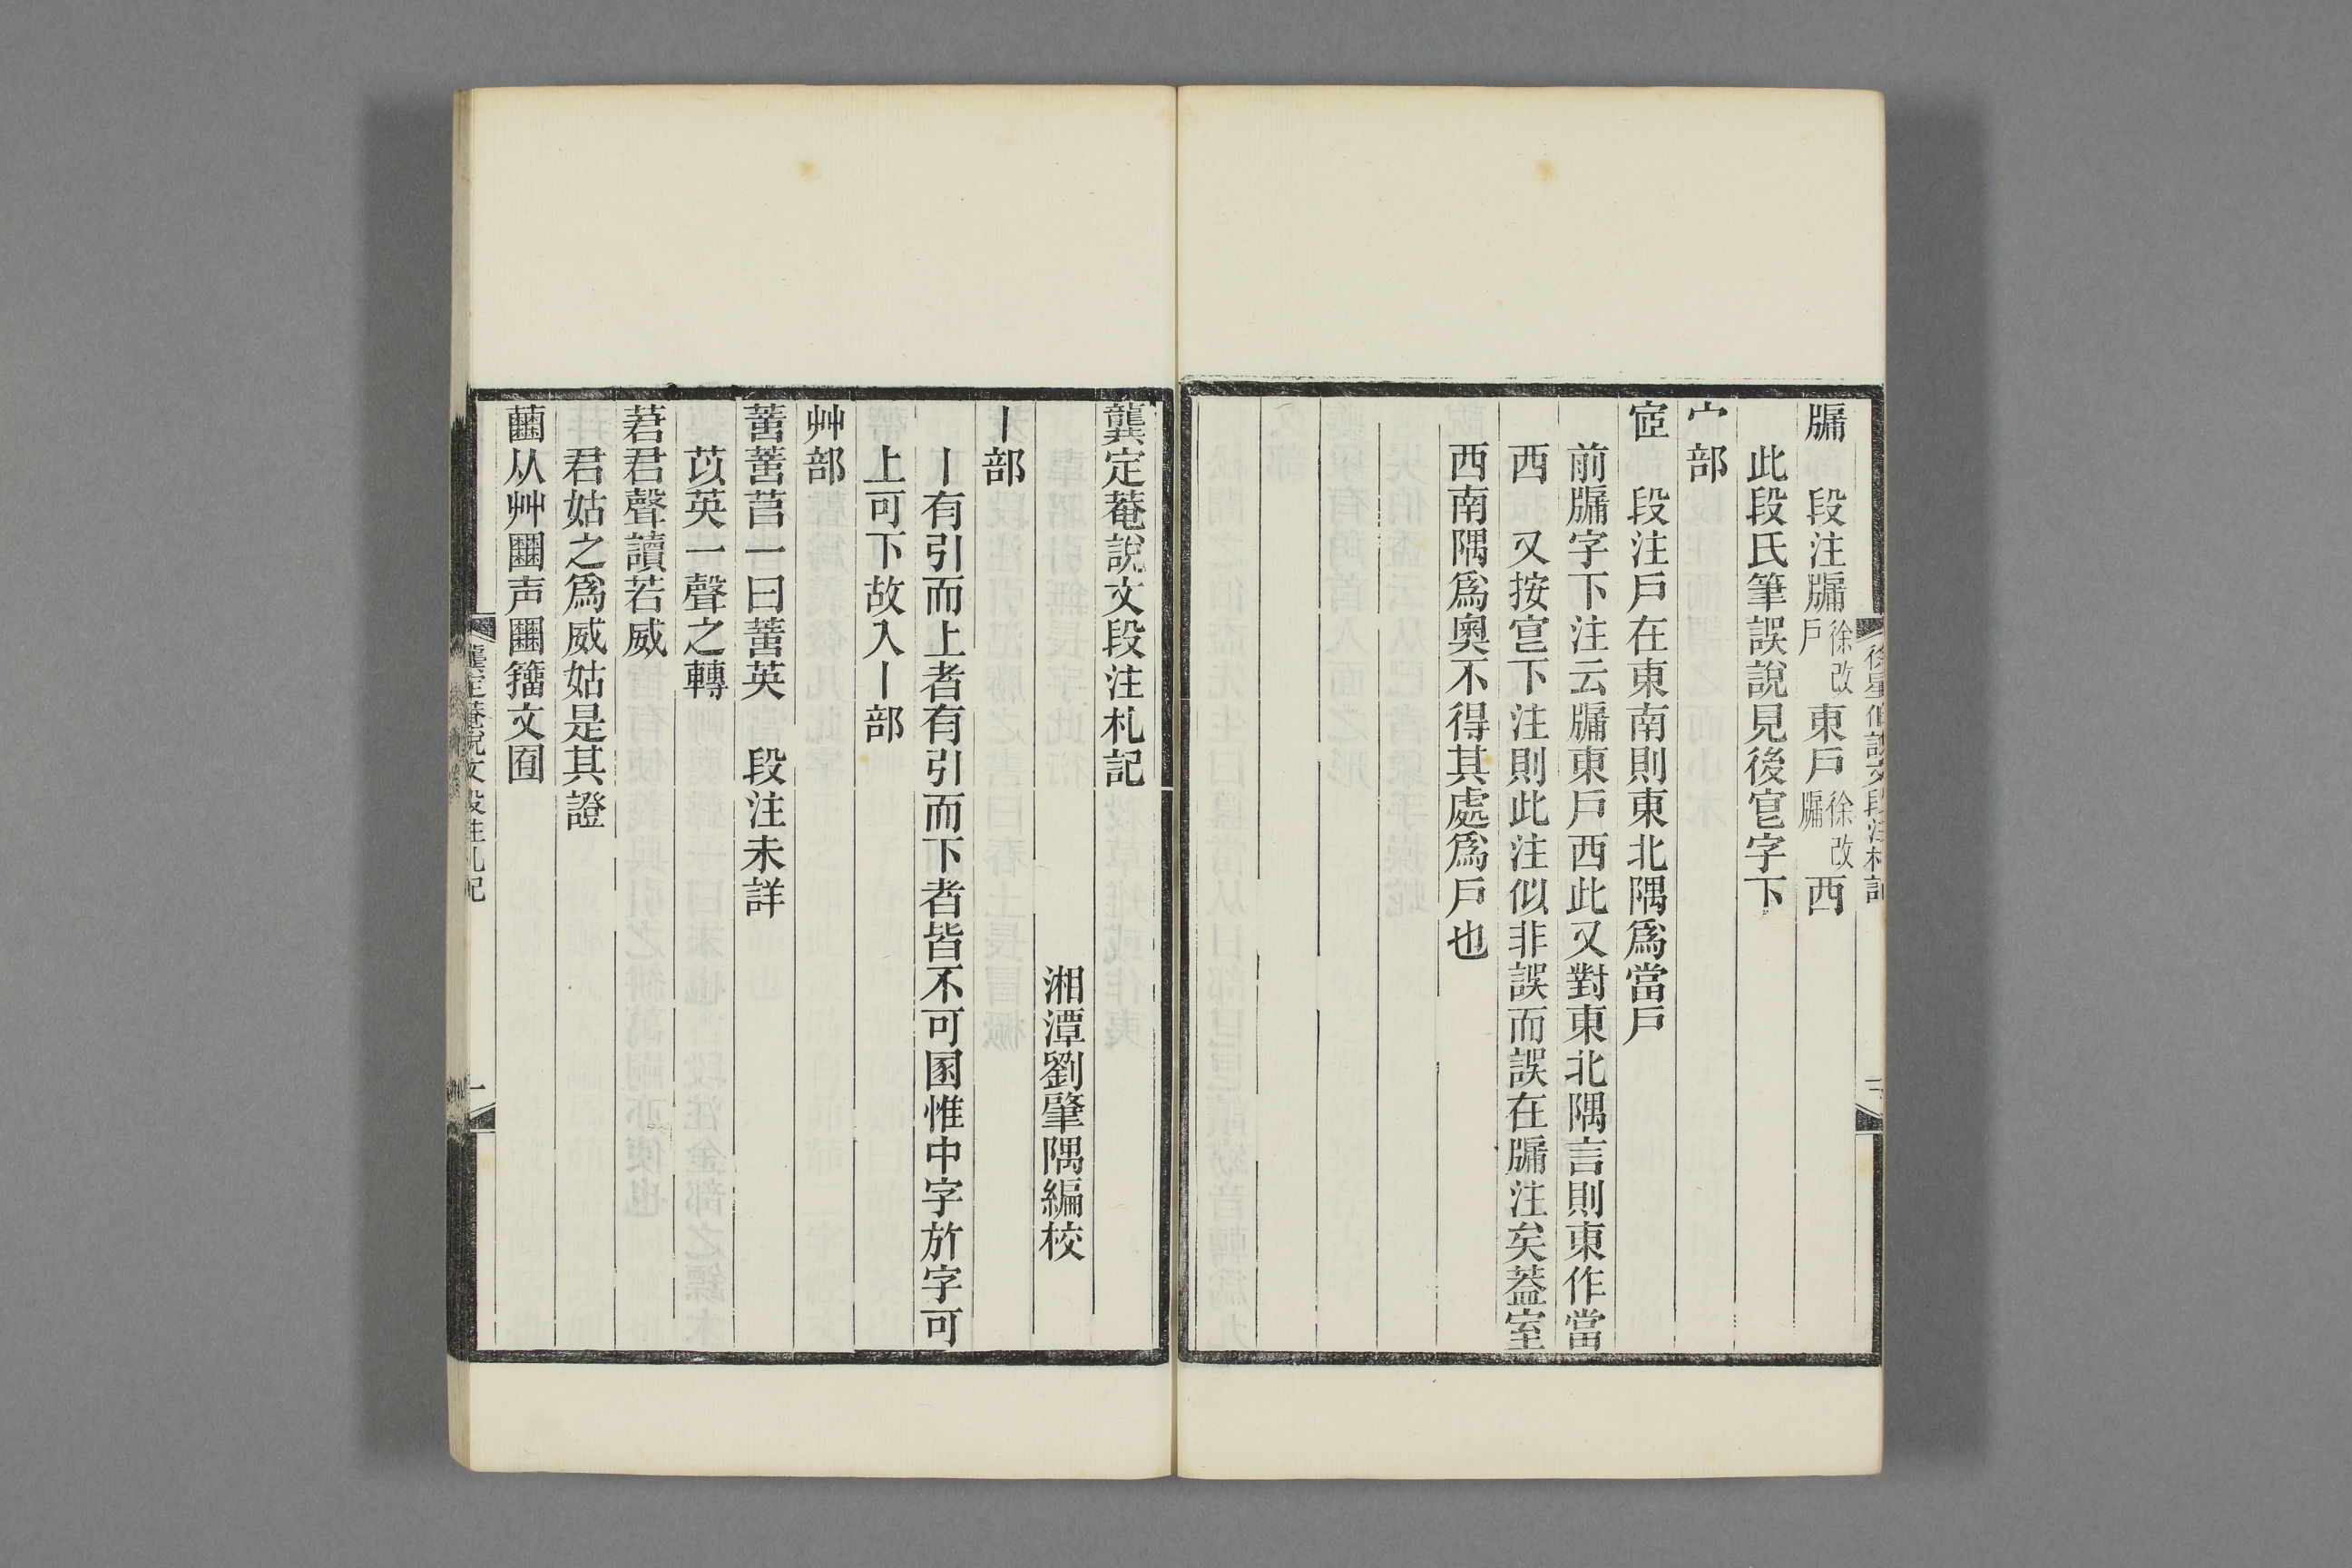 徐星伯說文段注札記
牖　段注牖徐改戶東戶徐改牖西
此段氏筆誤說見後宧字下
宀部
宧　段注戶在東南則東北隅爲當戶
前牖字下注云牖東戶西此又對東北隅言則東作當
西　又按宧下注則此注似非誤而誤在牖注矣葢室
西南隅爲奧不得其處爲戶也
龔定菴說文段注札記
湘潭劉肇隅編校
丨部
丨有引而上者有引而下者皆不可圂惟中字㫃字可
上可下故入丨部
艸部
䔰䔰莒一曰䔰英　段注未詳
苡英一聲之轉
莙君聲讀若威
君姑之爲威姑是其證
从艸声籒文囿
龔定菴說文段注札記
一